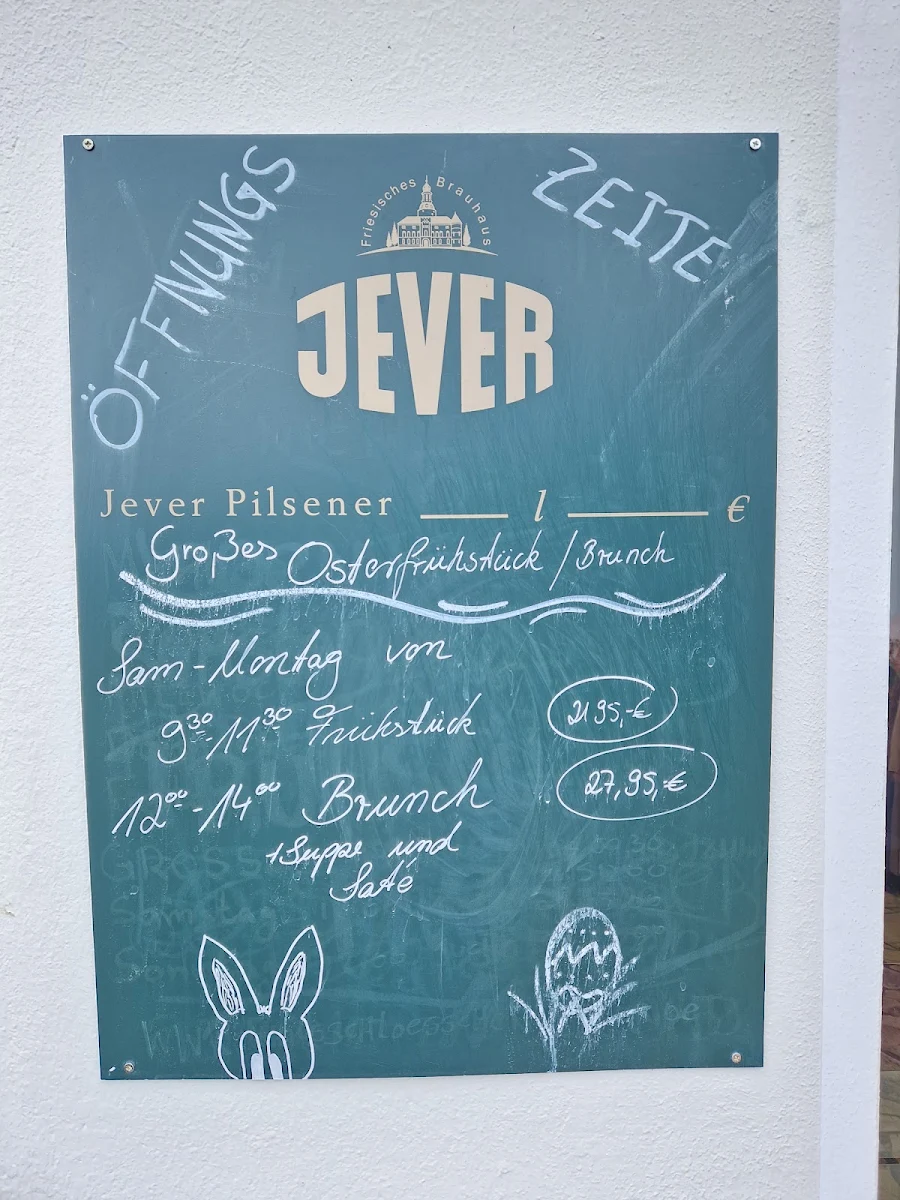 ÖFFNUNGS ZEITE
Friesisches Brauhaus
JEVER
Jever Pilsener ____ l ____ €
Großes Osterfrühstück / Brunch
Sam - Montag von
9³⁰ - 11³⁰ Frühstück 21,95,-€
12⁰⁰ - 14⁰⁰ Brunch 27,95,-€
+ Suppe und
Saté
GROSS
Samstag